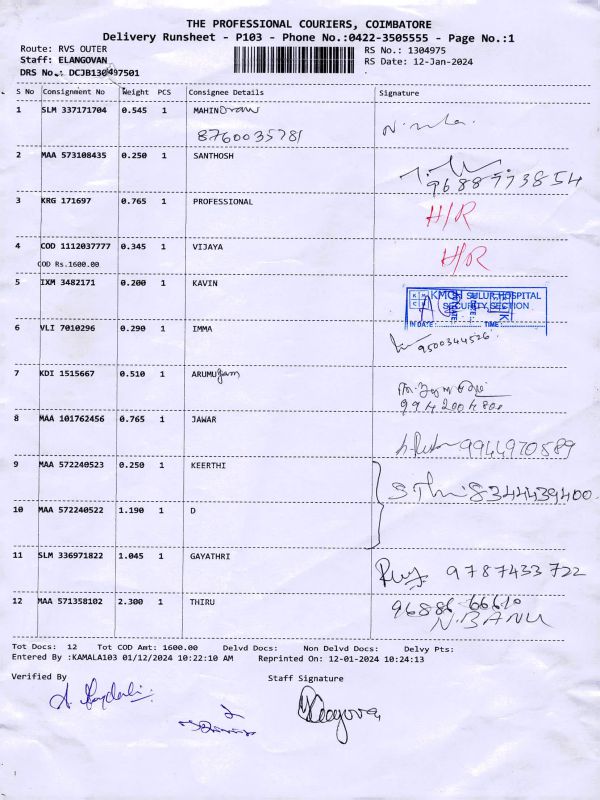 THE PROFESSIONAL COURIERS, COIMBATORE
Delivery Runsheet - P103 - Phone No.:0422-3505555 - Page No.:1
Route: RVS OUTER RS No.: 1304975
Staff: ELANGOVAN RS Date: 12-Jan-2024
DRS No.: DCJB130497501
S No Consignment No Weight PCS Consignee Details Signature
1 SLM 337171704 0.545 1 MAHINDRAN
8760035781
2 MAA 573108435 0.250 1 SANTHOSH
9688993854
3 KRG 171697 0.765 1 PROFESSIONAL H/R
4 COD 1112037777 0.345 1 VIJAYA H/R
COD Rs.1600.00
5 IXM 3482171 0.200 1 KAVIN KMCH SULUR HOSPITAL
SECURITY SECTION
IN DATE: TIME:
6 VLI 7010296 0.290 1 IMMA 9500344526
7 KDI 1515667 0.510 1 ARUMUgam
8 MAA 101762456 0.765 1 JAWAR 9944970589
9 MAA 572240523 0.250 1 KEERTHI 8344439400
10 MAA 572240522 1.190 1 D
11 SLM 336971822 1.045 1 GAYATHRI 9787433722
12 MAA 571358102 2.300 1 THIRU 96886 66610
N.BANU
Tot Docs: 12 Tot COD Amt: 1600.00 Delvd Docs: Non Delvd Docs: Delvy Pts:
Entered By :KAMALA103 01/12/2024 10:22:10 AM Reprinted On: 12-01-2024 10:24:13
Verified By Staff Signature